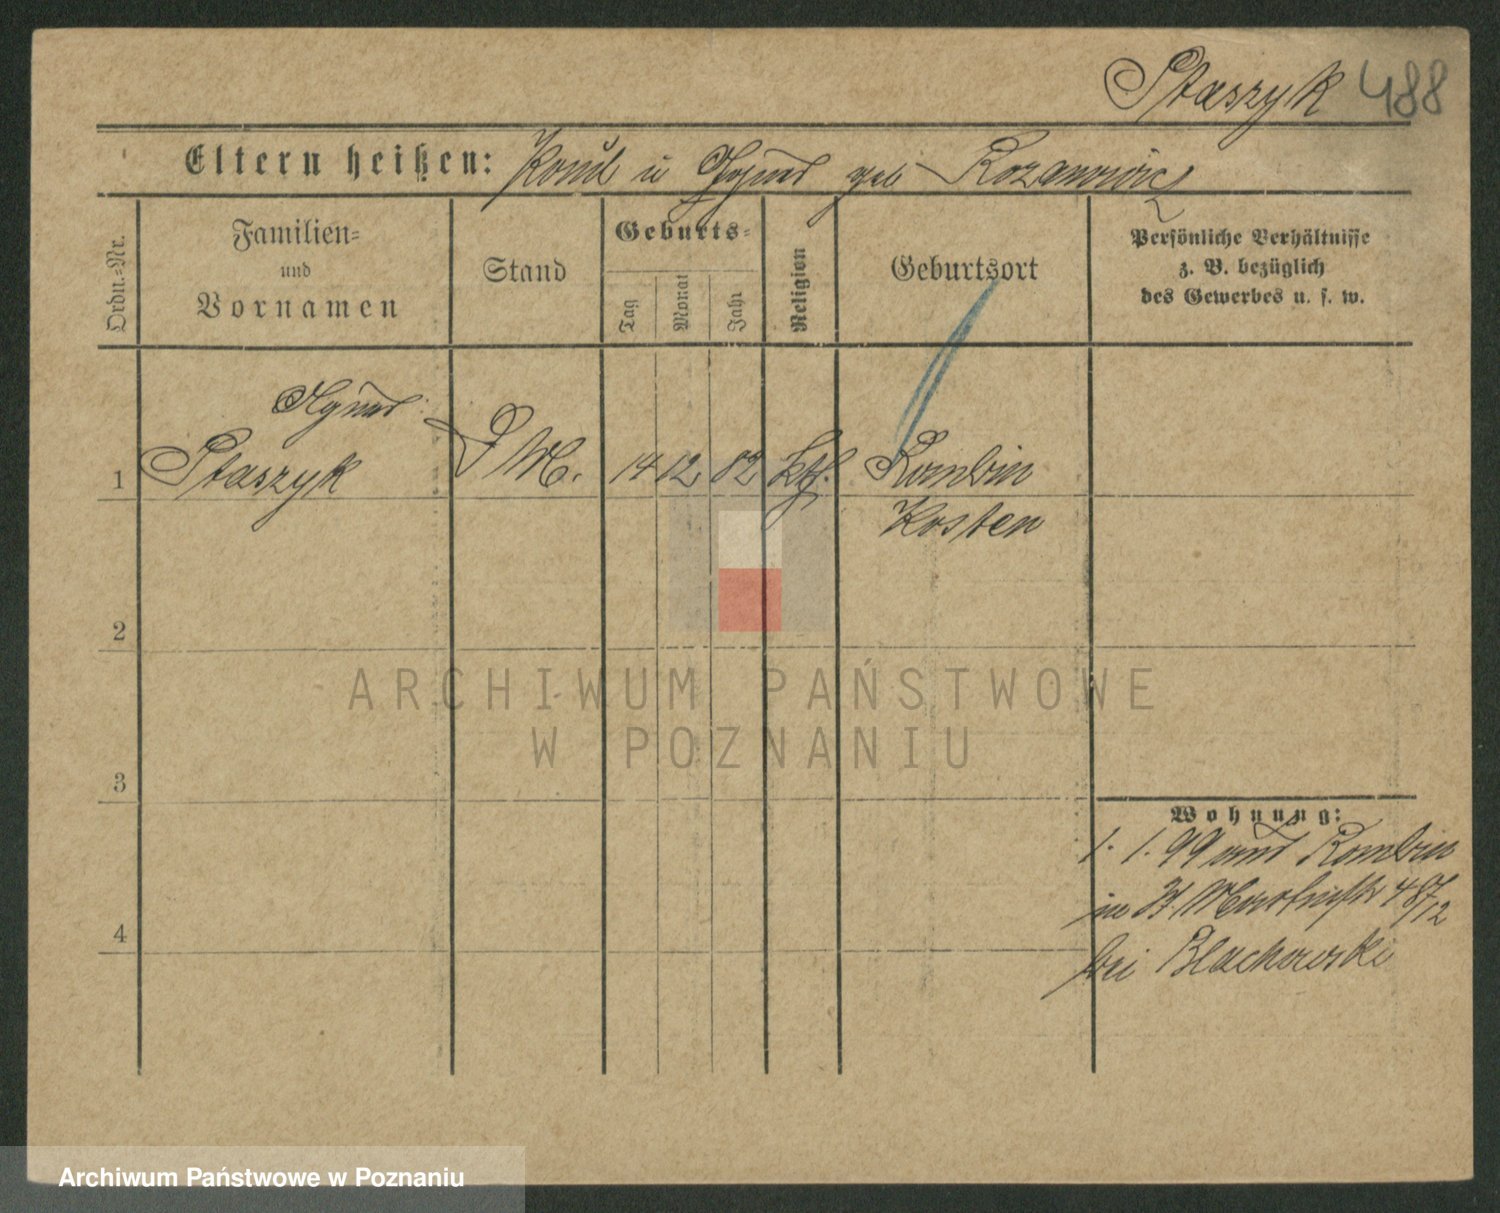 Staszyk 488
Eltern heißen: u geb Rozanowicz
Ordn.-Nr.
Familien-
und
Vornamen
Stand
Geburts-
Tag
Monat
Jahr
Religion
Geburtsort
Persönliche Verhältnisse
z. B. bezüglich
des Gewerbes u. s. w.
1 Staszyk D M. 14 12 82 kth. Rombin
Kosten
2
3
4
Wohnung:
1. 1. 99 aus Rombin
in 48/12
bei Blachowski
ARCHIWUM PAŃSTWOWE
W POZNANIU
Archiwum Państwowe w Poznaniu